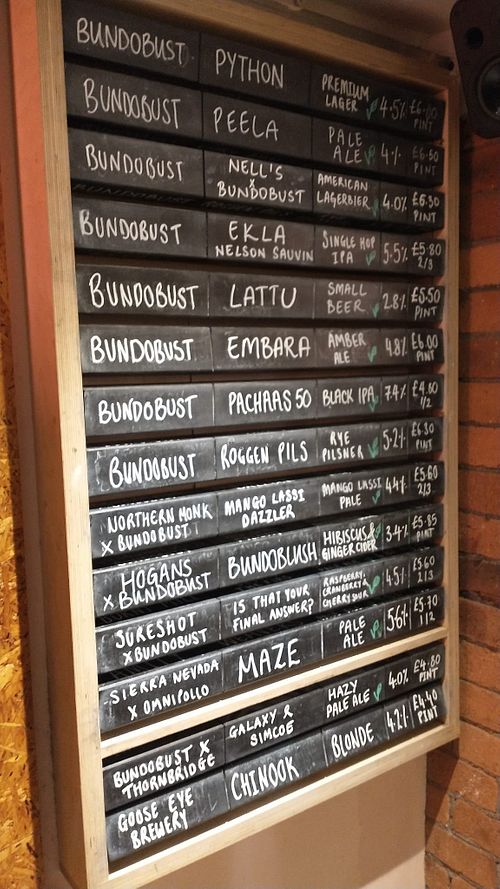 BUNDOBUST PYTHON PREMIUM LAGER 4.5% £6.00 PINT
BUNDOBUST PEELA PALE ALE 4% £6.50 PINT
BUNDOBUST NELL'S & BUNDOBUST AMERICAN LAGERBIER 4.0% PINT
BUNDOBUST EKLA NELSON SAUVIN SINGLE HOP IPA 5.5% £5.80 2/3
BUNDOBUST LATTU SMALL BEER 2.8% £5.50 PINT
BUNDOBUST EMBARA AMBER ALE 4.8% £6.00 PINT
BUNDOBUST PACHAAS 50 BLACK IPA 7.4% £4.80 1/2
BUNDOBUST ROGGEN PILS RYE PILSNER 5.2% £6.30 PINT
NORTHERN MONK X BUNDOBUST MANGO LASSI DAZZLER MANGO LASSI PALE 4.4% £5.60 2/3
HOGANS X BUNDOBUST BUNDOBLUSH HIBISCUS & GINGER CIDER 3.4% £5.85 PINT
SURESHOT X BUNDOBUST IS THAT YOUR FINAL ANSWER? RASPBERRY, CRANBERRY & CHERRY SOUR 4.5% £5.60 2/3
SIERRA NEVADA X OMNIPOLLO MAZE PALE ALE 5.6% £5.70
BUNDOBUST X THORNBRIDGE GALAXY & SIMCOE HAZY PALE ALE 4.0% £4.80 PINT
GOOSE EYE BREWERY CHINOOK BLONDE 4.2% £4.40 PINT